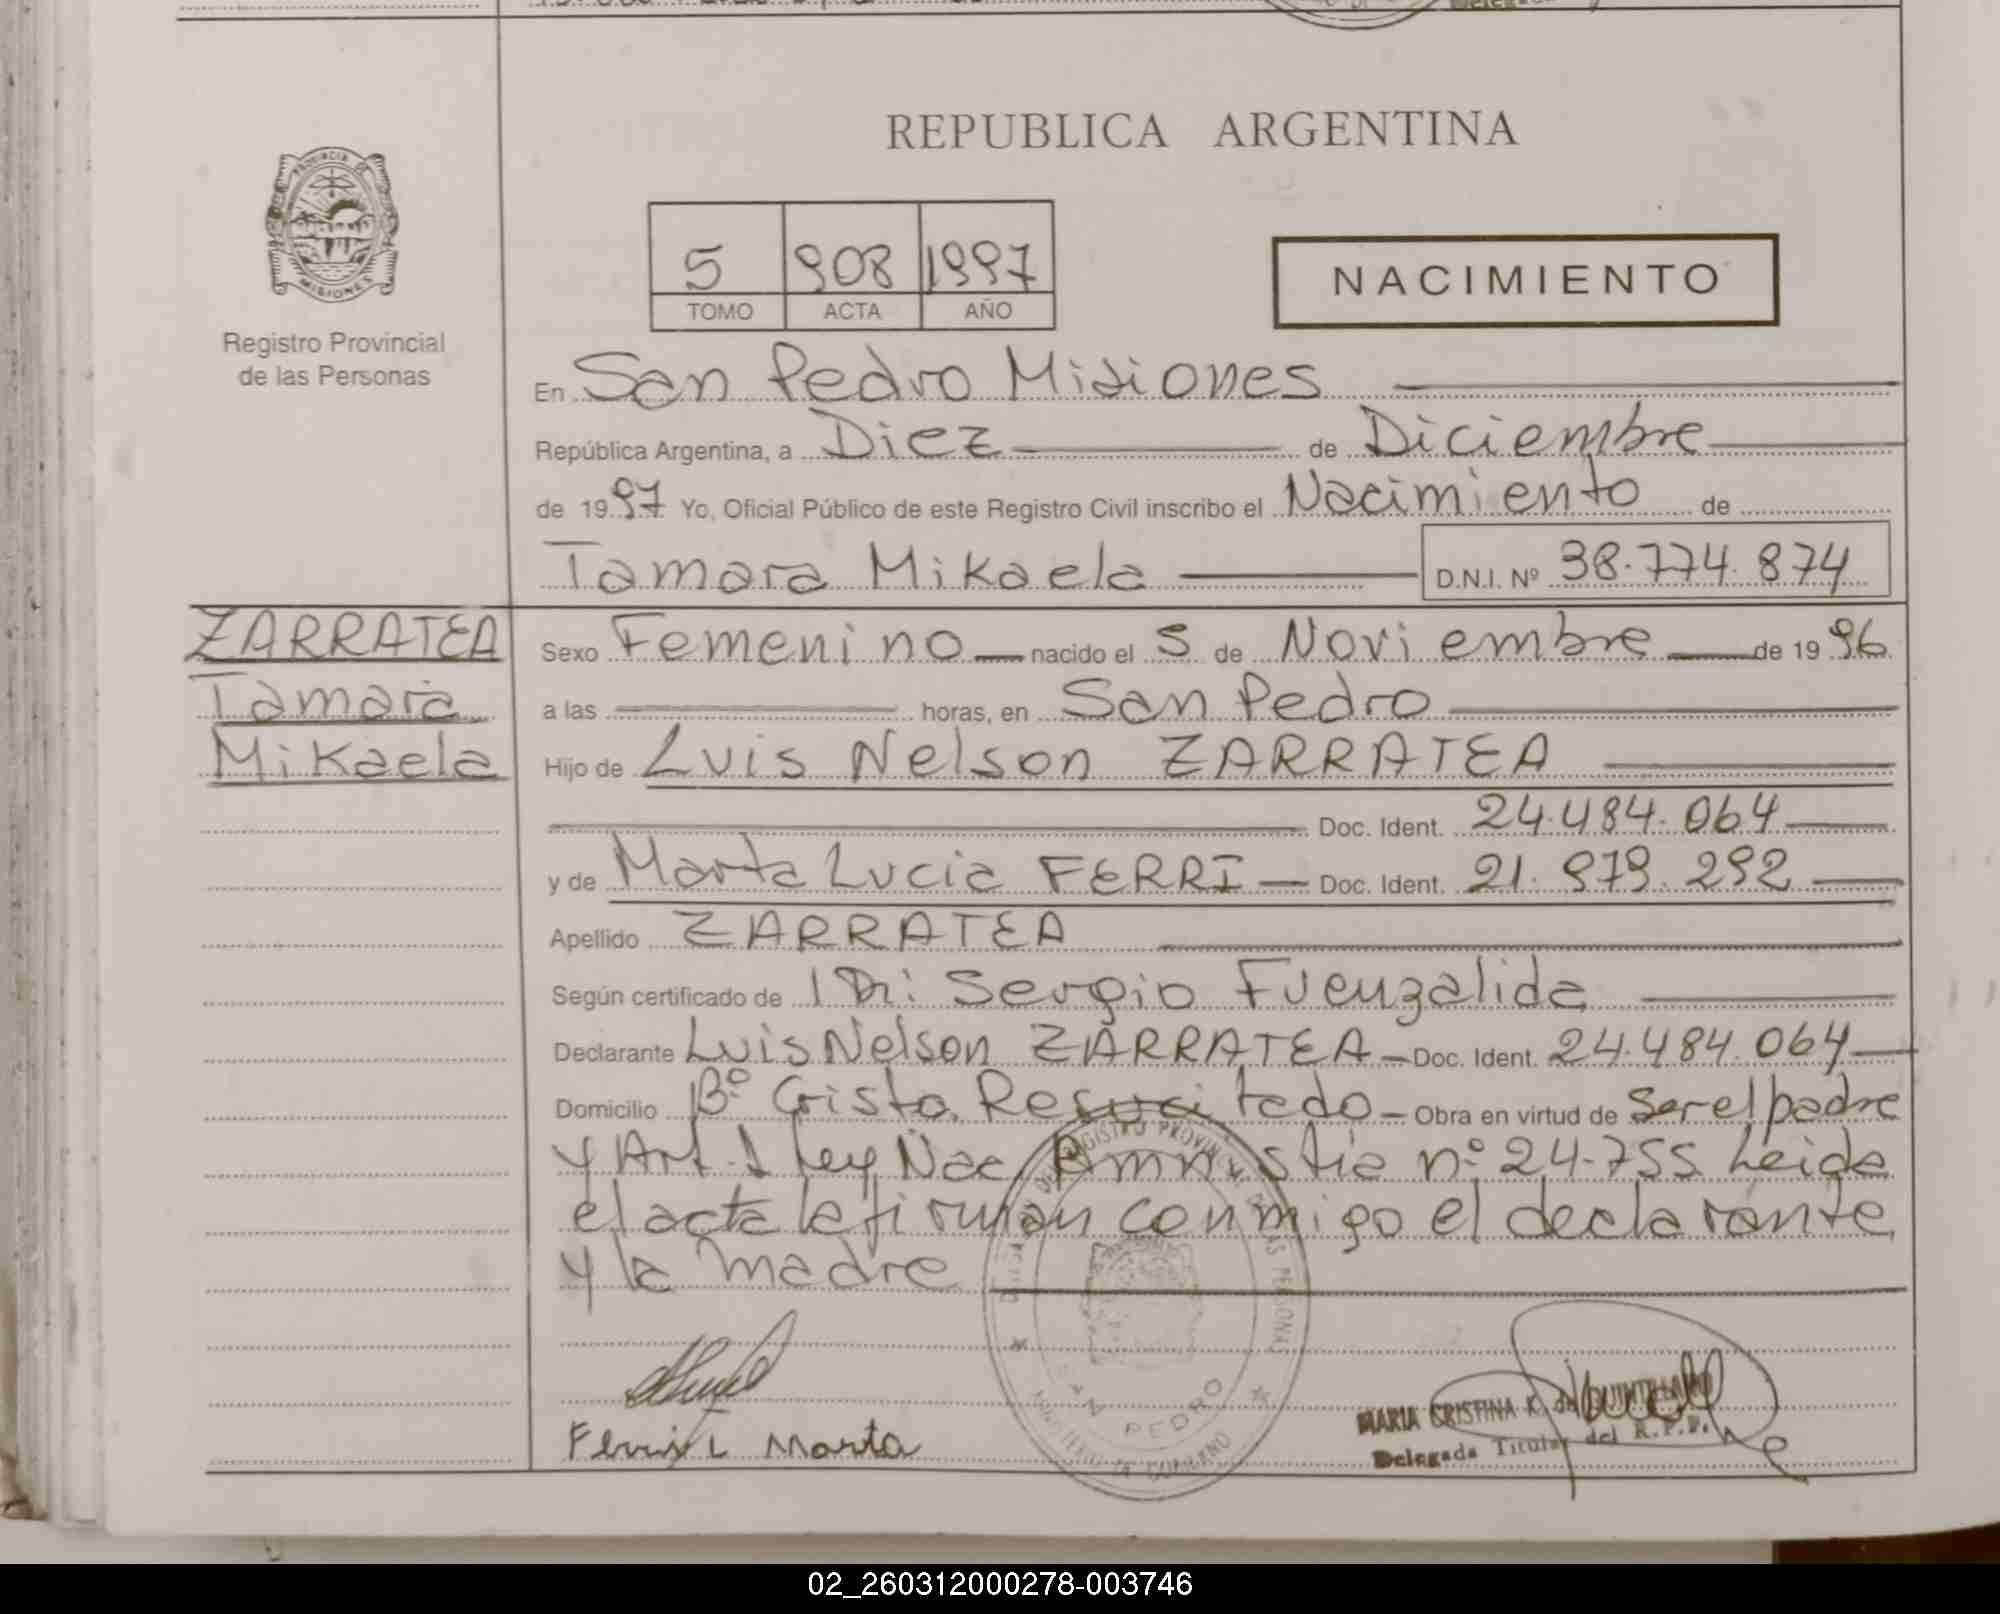 REPUBLICA ARGENTINA
PROVINCIA DE
MISIONES
Registro Provincial
de las Personas
5 908 1997
TOMO ACTA AÑO
NACIMIENTO
En San Pedro Misiones
República Argentina, a Diez de Diciembre
de 1997 Yo, Oficial Público de este Registro Civil inscribo el Nacimiento de
Tamara Mikaela D.N.I. Nº 38.774.874
ZARRATEA
Tamara
Mikaela
Sexo Femenino nacido el 5 de Noviembre de 1996
a las horas, en San Pedro
Hijo de Luis Nelson ZARRATEA
Doc. Ident. 24.484.064
y de Marta Lucia FERRI Doc. Ident. 21.979.292
Apellido ZARRATEA
Según certificado de Dr: Sergio Fuenzalida
Declarante Luis Nelson ZARRATEA Doc. Ident. 24.484.064
Domicilio Bº Cristo Resucitado Obra en virtud de Ser el padre
y Art. 1 Ley Nac Amnistia nº 24.755. Leida
el acta la firman conmigo el declarante
y la madre
SAN PEDRO
MINISTERIO DE GOBIERNO
Ferri L Marta
MARIA CRISTINA K. de QUINTANA
Delegada Titular del R.P.P.
02_260312000278-003746